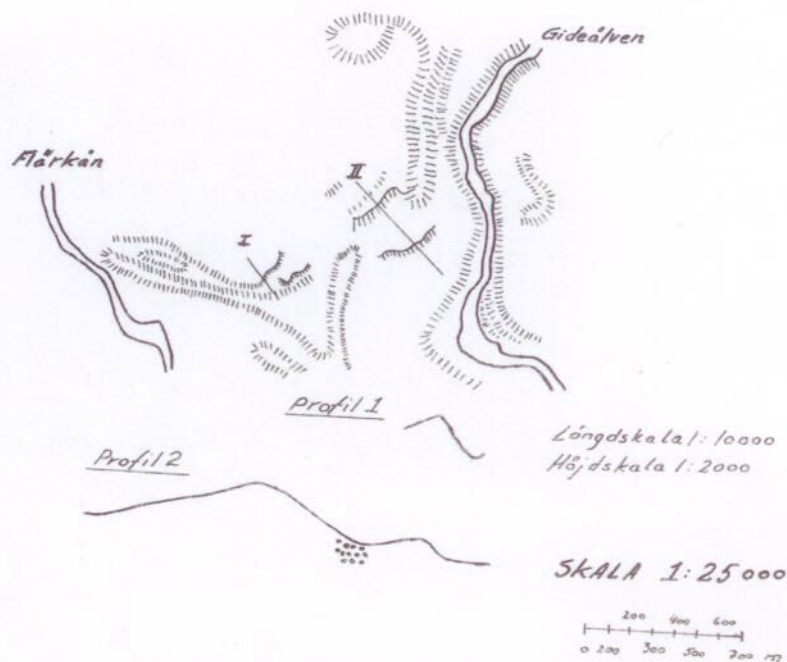 Gideälven
Flärkån
II
I
Profil 1
Längdskala 1:10000
Höjdskala 1:2000
Profil 2
SKALA 1:25000
200 400 600
0 200 300 500 700 m